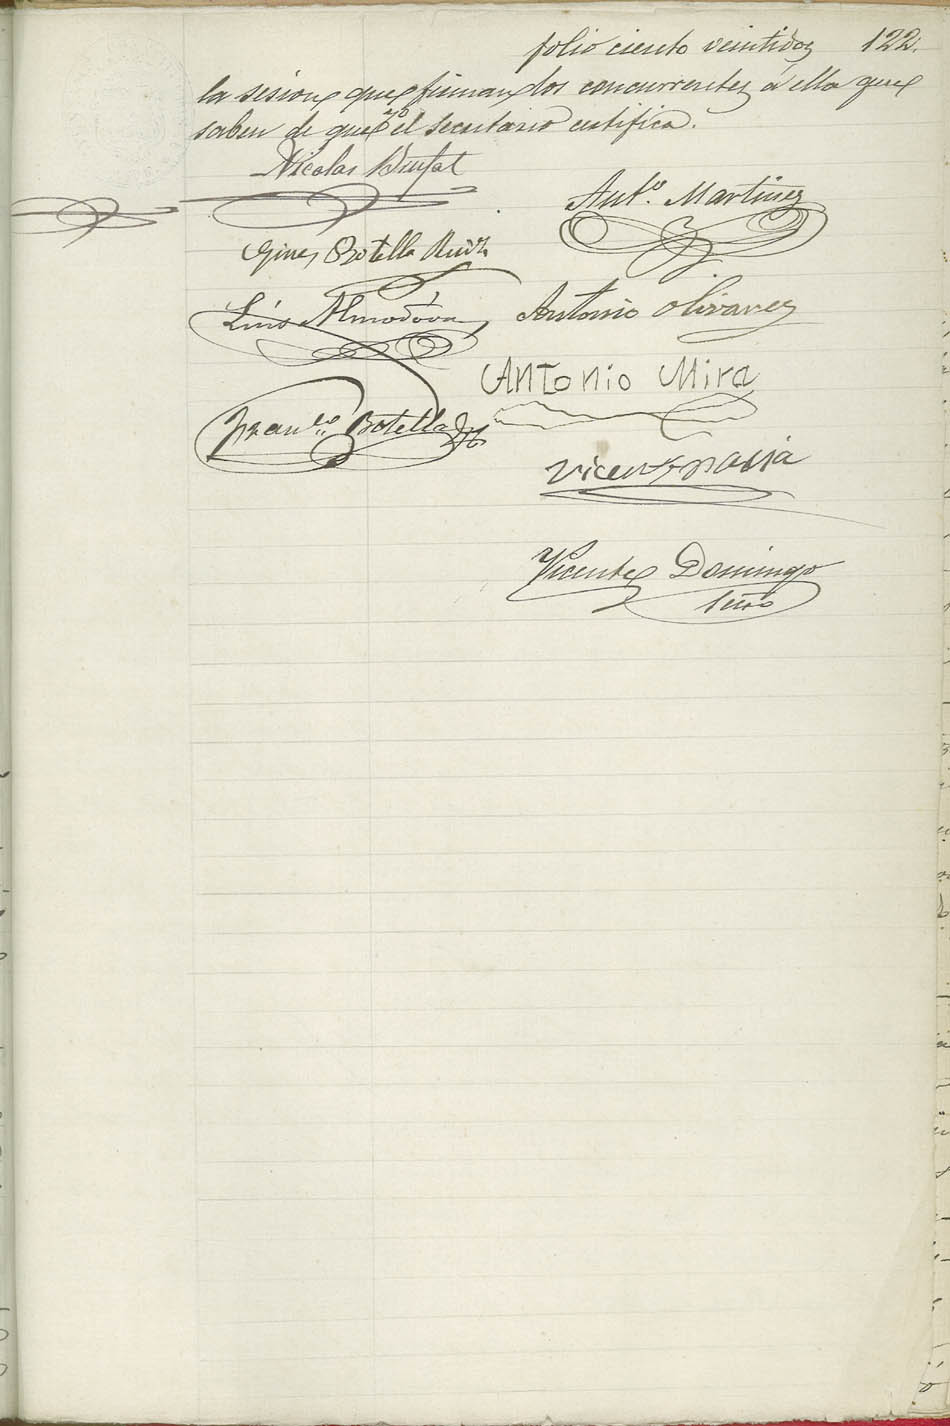 folio ciento veintidos 122.
la sesion, que firman los concurrentes á ella que
saben de que yo el secretario certifica.
Nicolas Brufal
Ant.º Martinez
Gines Botella Ruiz
Luis Almodóvar
Antonio Olivares
Antonio Mira
Fran.co Botella
Vicente
Vicente Domingo
Srio